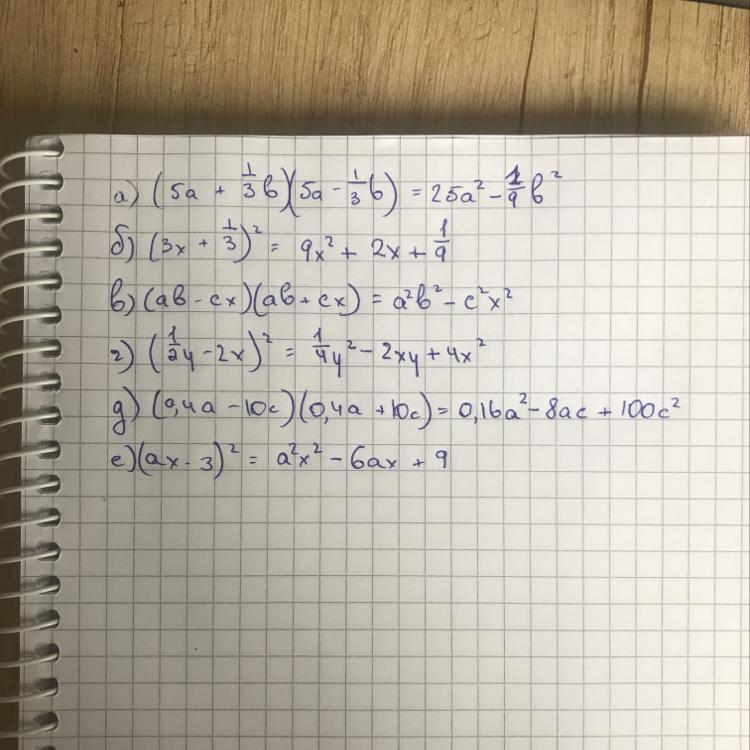 а) (5a + 1/3 b)(5a - 1/3 b) = 25a² - 1/9 b²
б) (3x + 1/3)² = 9x² + 2x + 1/9
в) (ab - cx)(ab + cx) = a²b² - c²x²
г) (1/2 y - 2x)² = 1/4 y² - 2xy + 4x²
д) (0,4a - 10c)(0,4a + 10c) = 0,16a² - 8ac + 100c²
е) (ax - 3)² = a²x² - 6ax + 9